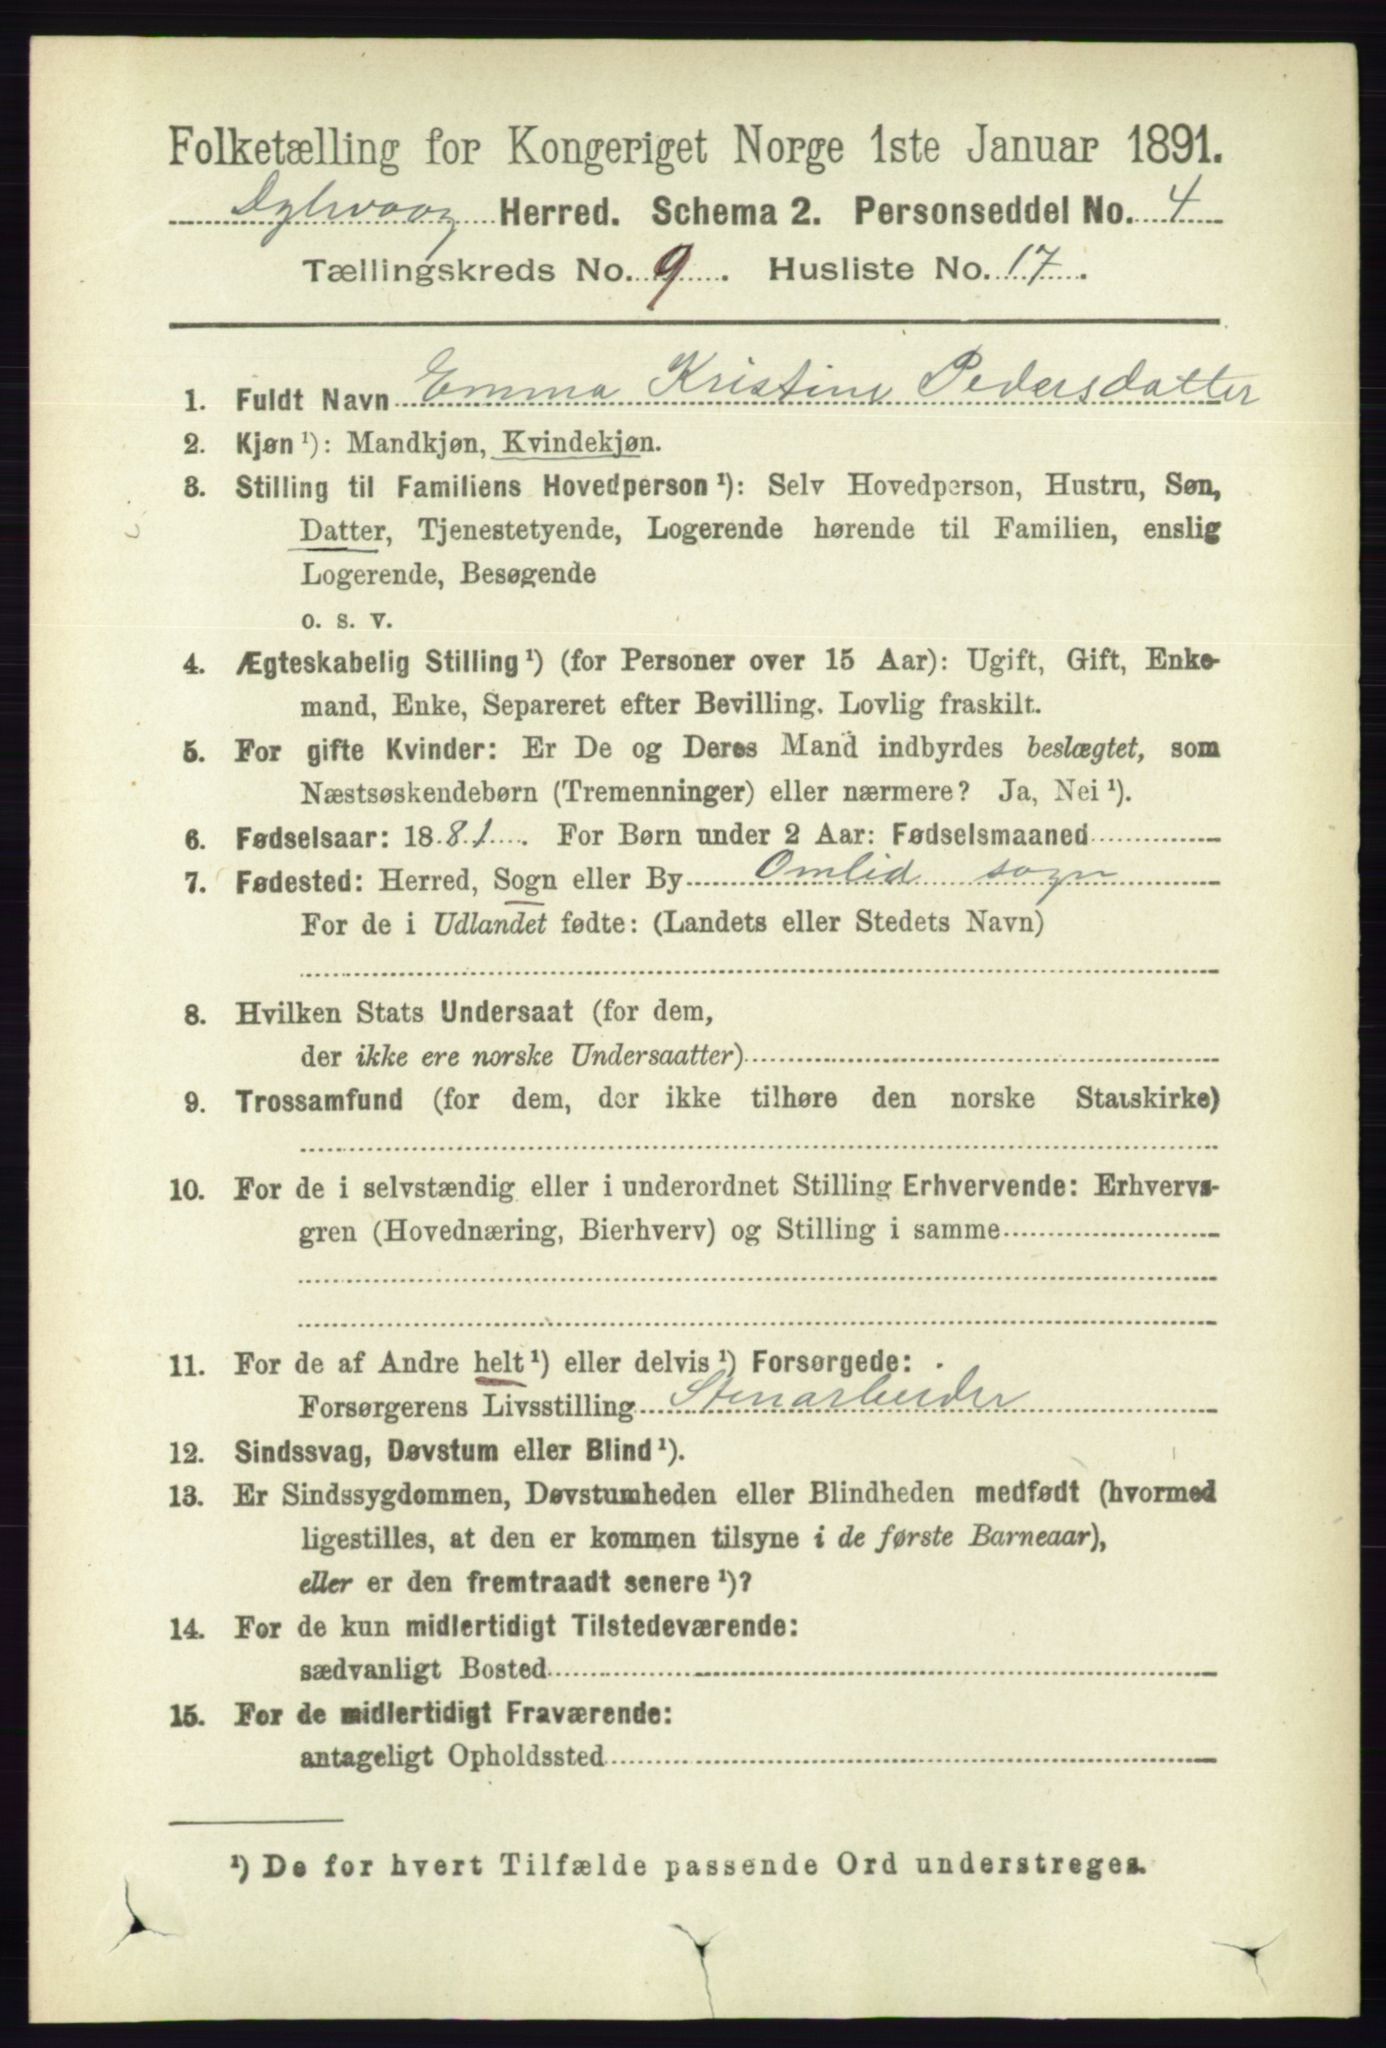 Folketælling for Kongeriget Norge 1ste Januar 1891.
Dybvaag Herred. Schema 2. Personseddel No. 4
Tællingskreds No. 9. Husliste No. 17.
1. Fuldt Navn Emma Kristine Pedersdatter
2. Kjøn ¹): Mandkjøn, Kvindekjøn.
3. Stilling til Familiens Hovedperson ¹): Selv Hovedperson, Hustru, Søn,
Datter, Tjenestetyende, Logerende hørende til Familien, enslig
Logerende, Besøgende
o. s. v.
4. Ægteskabelig Stilling ¹) (for Personer over 15 Aar): Ugift, Gift, Enke-
mand, Enke, Separeret efter Bevilling. Lovlig fraskilt.
5. For gifte Kvinder: Er De og Deres Mand indbyrdes beslægtet, som
Næstsøskendebørn (Tremenninger) eller nærmere? Ja, Nei ¹).
6. Fødselsaar: 1881. For Børn under 2 Aar: Fødselsmaaned
7. Fødested: Herred, Sogn eller By Omlid sogn
For de i Udlandet fødte: (Landets eller Stedets Navn)
8. Hvilken Stats Undersaat (for dem,
der ikke ere norske Undersaatter)
9. Trossamfund (for dem, der ikke tilhøre den norske Statskirke)
10. For de i selvstændig eller i underordnet Stilling Erhvervende: Erhvervs-
gren (Hovednæring, Bierhverv) og Stilling i samme
11. For de af Andre helt ¹) eller delvis ¹) Forsørgede:
Forsørgerens Livsstilling Stenarbeider
12. Sindssvag, Døvstum eller Blind ¹).
13. Er Sindssygdommen, Døvstumheden eller Blindheden medfødt (hvormed
ligestilles, at den er kommen tilsyne i de første Barneaar),
eller er den fremtraadt senere ¹)?
14. For de kun midlertidigt Tilstedeværende:
sædvanligt Bosted
15. For de midlertidigt Fraværende:
antageligt Opholdssted
¹) De for hvert Tilfælde passende Ord understreges.